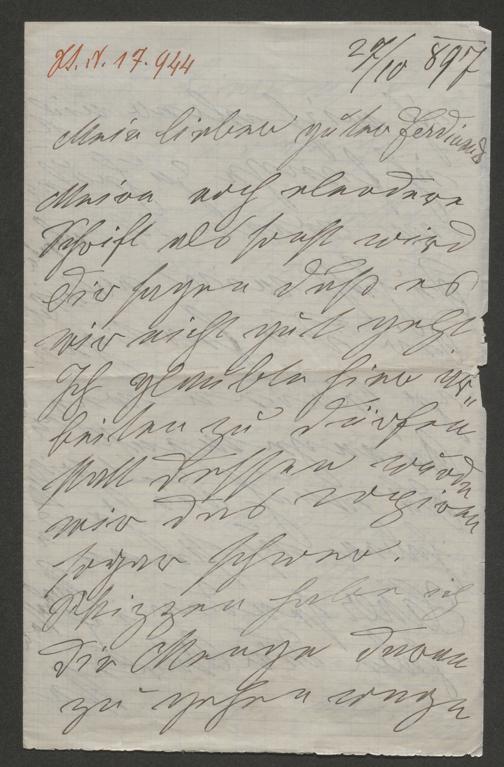 H.I.N. 17.944
27/10 897
Mein lieber guter Ferdinand
Meine noch elendere
Schrift als sonst wird
Dir sagen daß es
mir nicht gut geht
Ich glaubte hier ar„
beiten zu dürfen
statt dessen wurde
mir das
sogar schwer.
Skizzen habe ich
die Menge daran
zu gehen wage